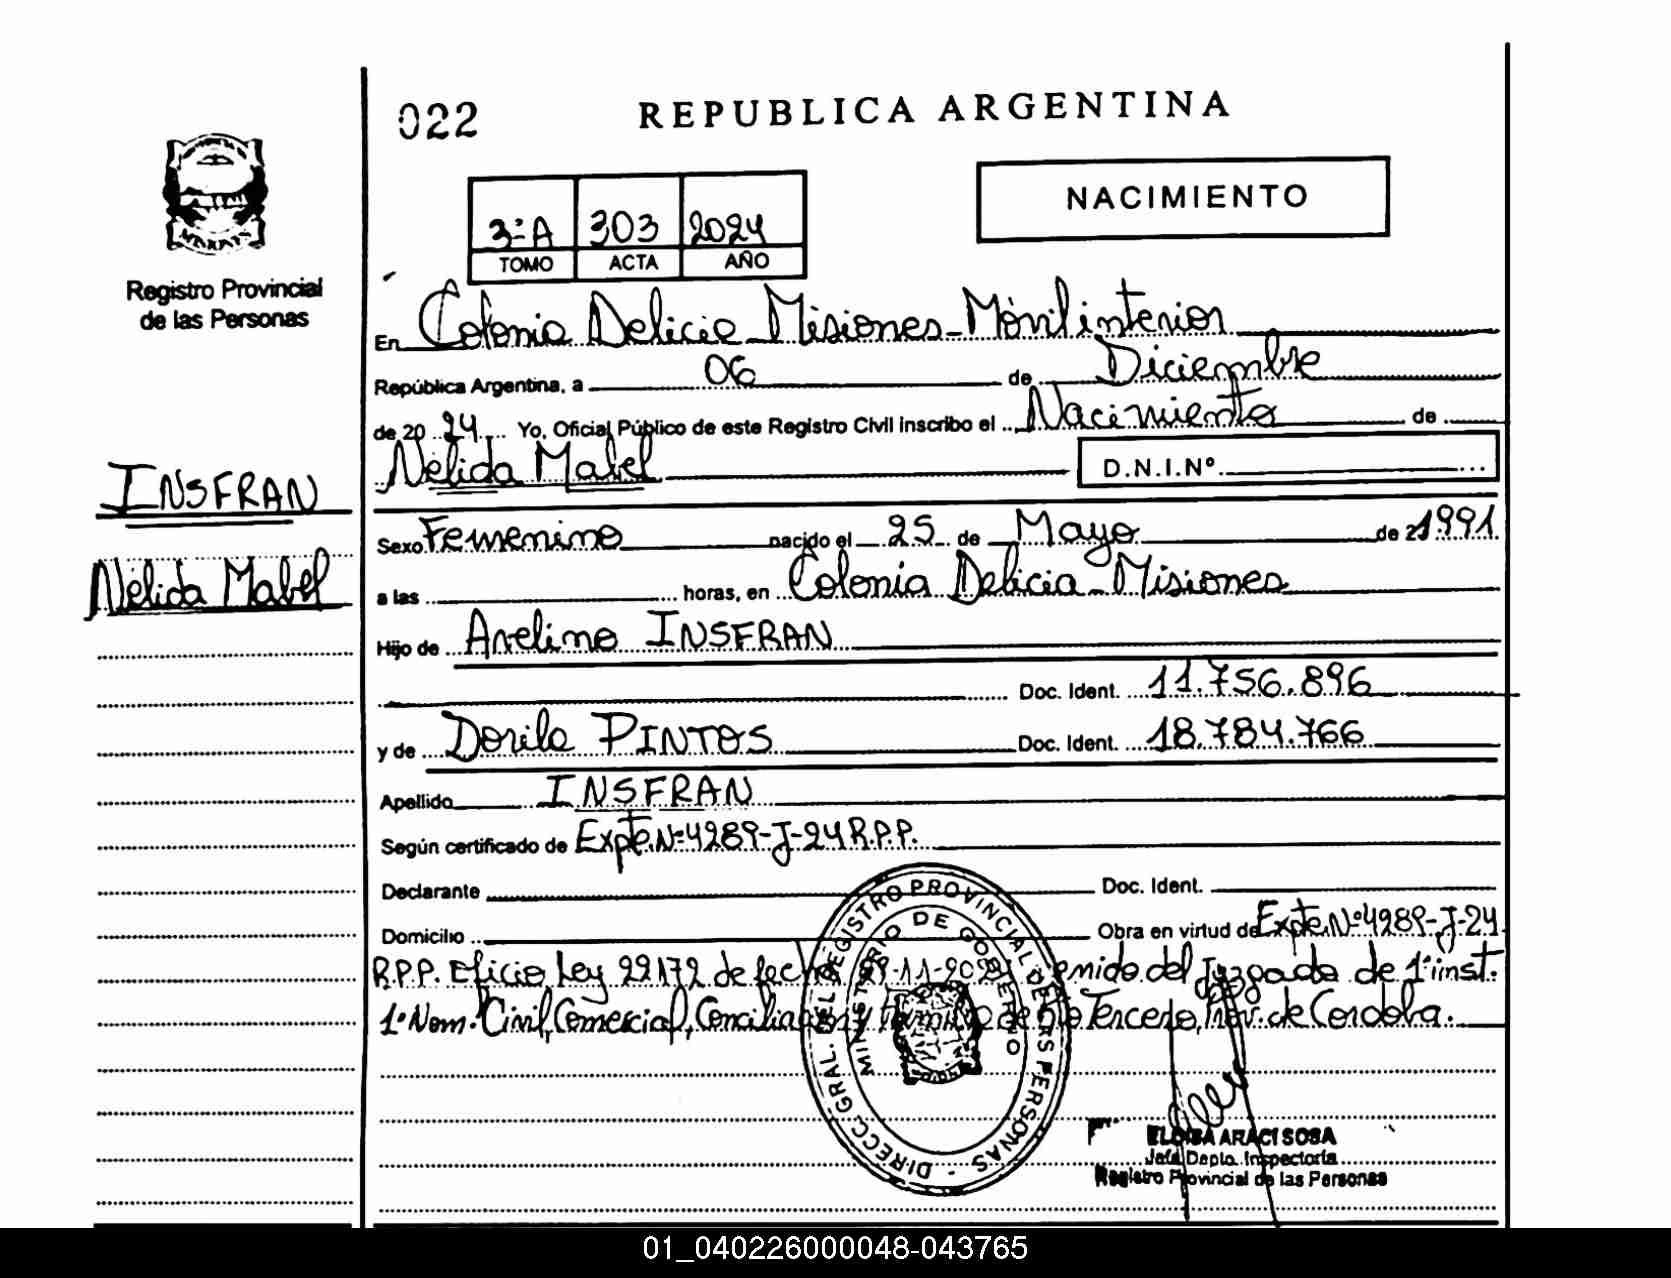 022
REPUBLICA ARGENTINA
NACIMIENTO
3-A 303 2024
TOMO ACTA AÑO
MISIONES
Registro Provincial
de las Personas
En Colonia Delicia Misiones - Móvil interior
República Argentina, a 06 de Diciembre
de 20 24 Yo, Oficial Público de este Registro Civil inscribo el Nacimiento de
Nélida Mabel D.N.I.Nº
INSFRAN
Nélida Mabel
Sexo Femenino nacido el 25 de Mayo de 2 1991
a las horas, en Colonia Delicia - Misiones
Hijo de Avelino INSFRAN
Doc. Ident. 11.756.896
y de Dorila PINTOS Doc. Ident. 18.784.766
Apellido INSFRAN
Según certificado de Expte.Nº4289-J-24 R.P.P.
Declarante Doc. Ident.
Domicilio Obra en virtud de Expte.Nº4289-J-24
R.P.P. Oficio Ley 22172 de fecha -11-202 del Juzgado de 1º inst.
1º Nom. Civil, Comercial, Conciliación y Familia de Rio Tercero, Prov. de Cordoba.
DIRECC. GRAL. DEL REGISTRO PROVINCIAL DE PERSONAS
MINISTERIO DE GOBIERNO
ELOISA ARACI SOSA
Jefa Depto. Inspectoría
Registro Provincial de las Personas
01_040226000048-043765